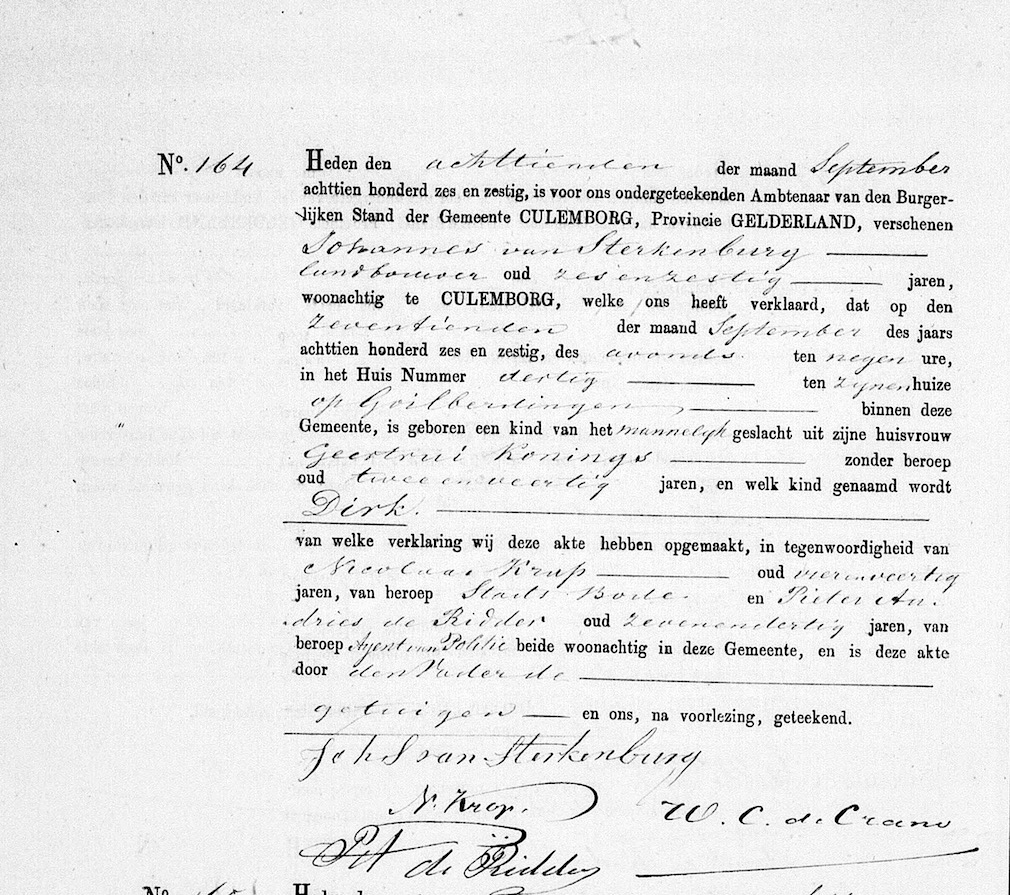 N°. 164 Heden den achttienden der maand September
achttien honderd zes en zestig, is voor ons ondergeteekenden Ambtenaar van den Burger-
lijken Stand der Gemeente CULEMBORG, Provincie GELDERLAND, verschenen
Johannes van Sterkenburg
landbouwer oud zes en zestig jaren,
woonachtig te CULEMBORG, welke ons heeft verklaard, dat op den
zeventienden der maand September des jaars
achttien honderd zes en zestig, des avonds ten negen ure,
in het Huis Nummer dertig ten zijnen huize
op Goilberdingen, binnen deze
Gemeente, is geboren een kind van het mannelyk geslacht uit zijne huisvrouw
Geertrui Konings zonder beroep
oud twee en veertig jaren, en welk kind genaamd wordt
Dirk.
van welke verklaring wij deze akte hebben opgemaakt, in tegenwoordigheid van
Nicolaas Krop oud vierenveertig
jaren, van beroep Stads Bode en Pieter An-
dries de Ridder oud zevenendertig jaren, van
beroep Agent van Politie beide woonachtig in deze Gemeente, en is deze akte
door den Vader de
getuigen en ons, na voorlezing, geteekend.
van Sterkenburg
N. Krop. W. C. de Crane
PA de Ridder
N°. Heden